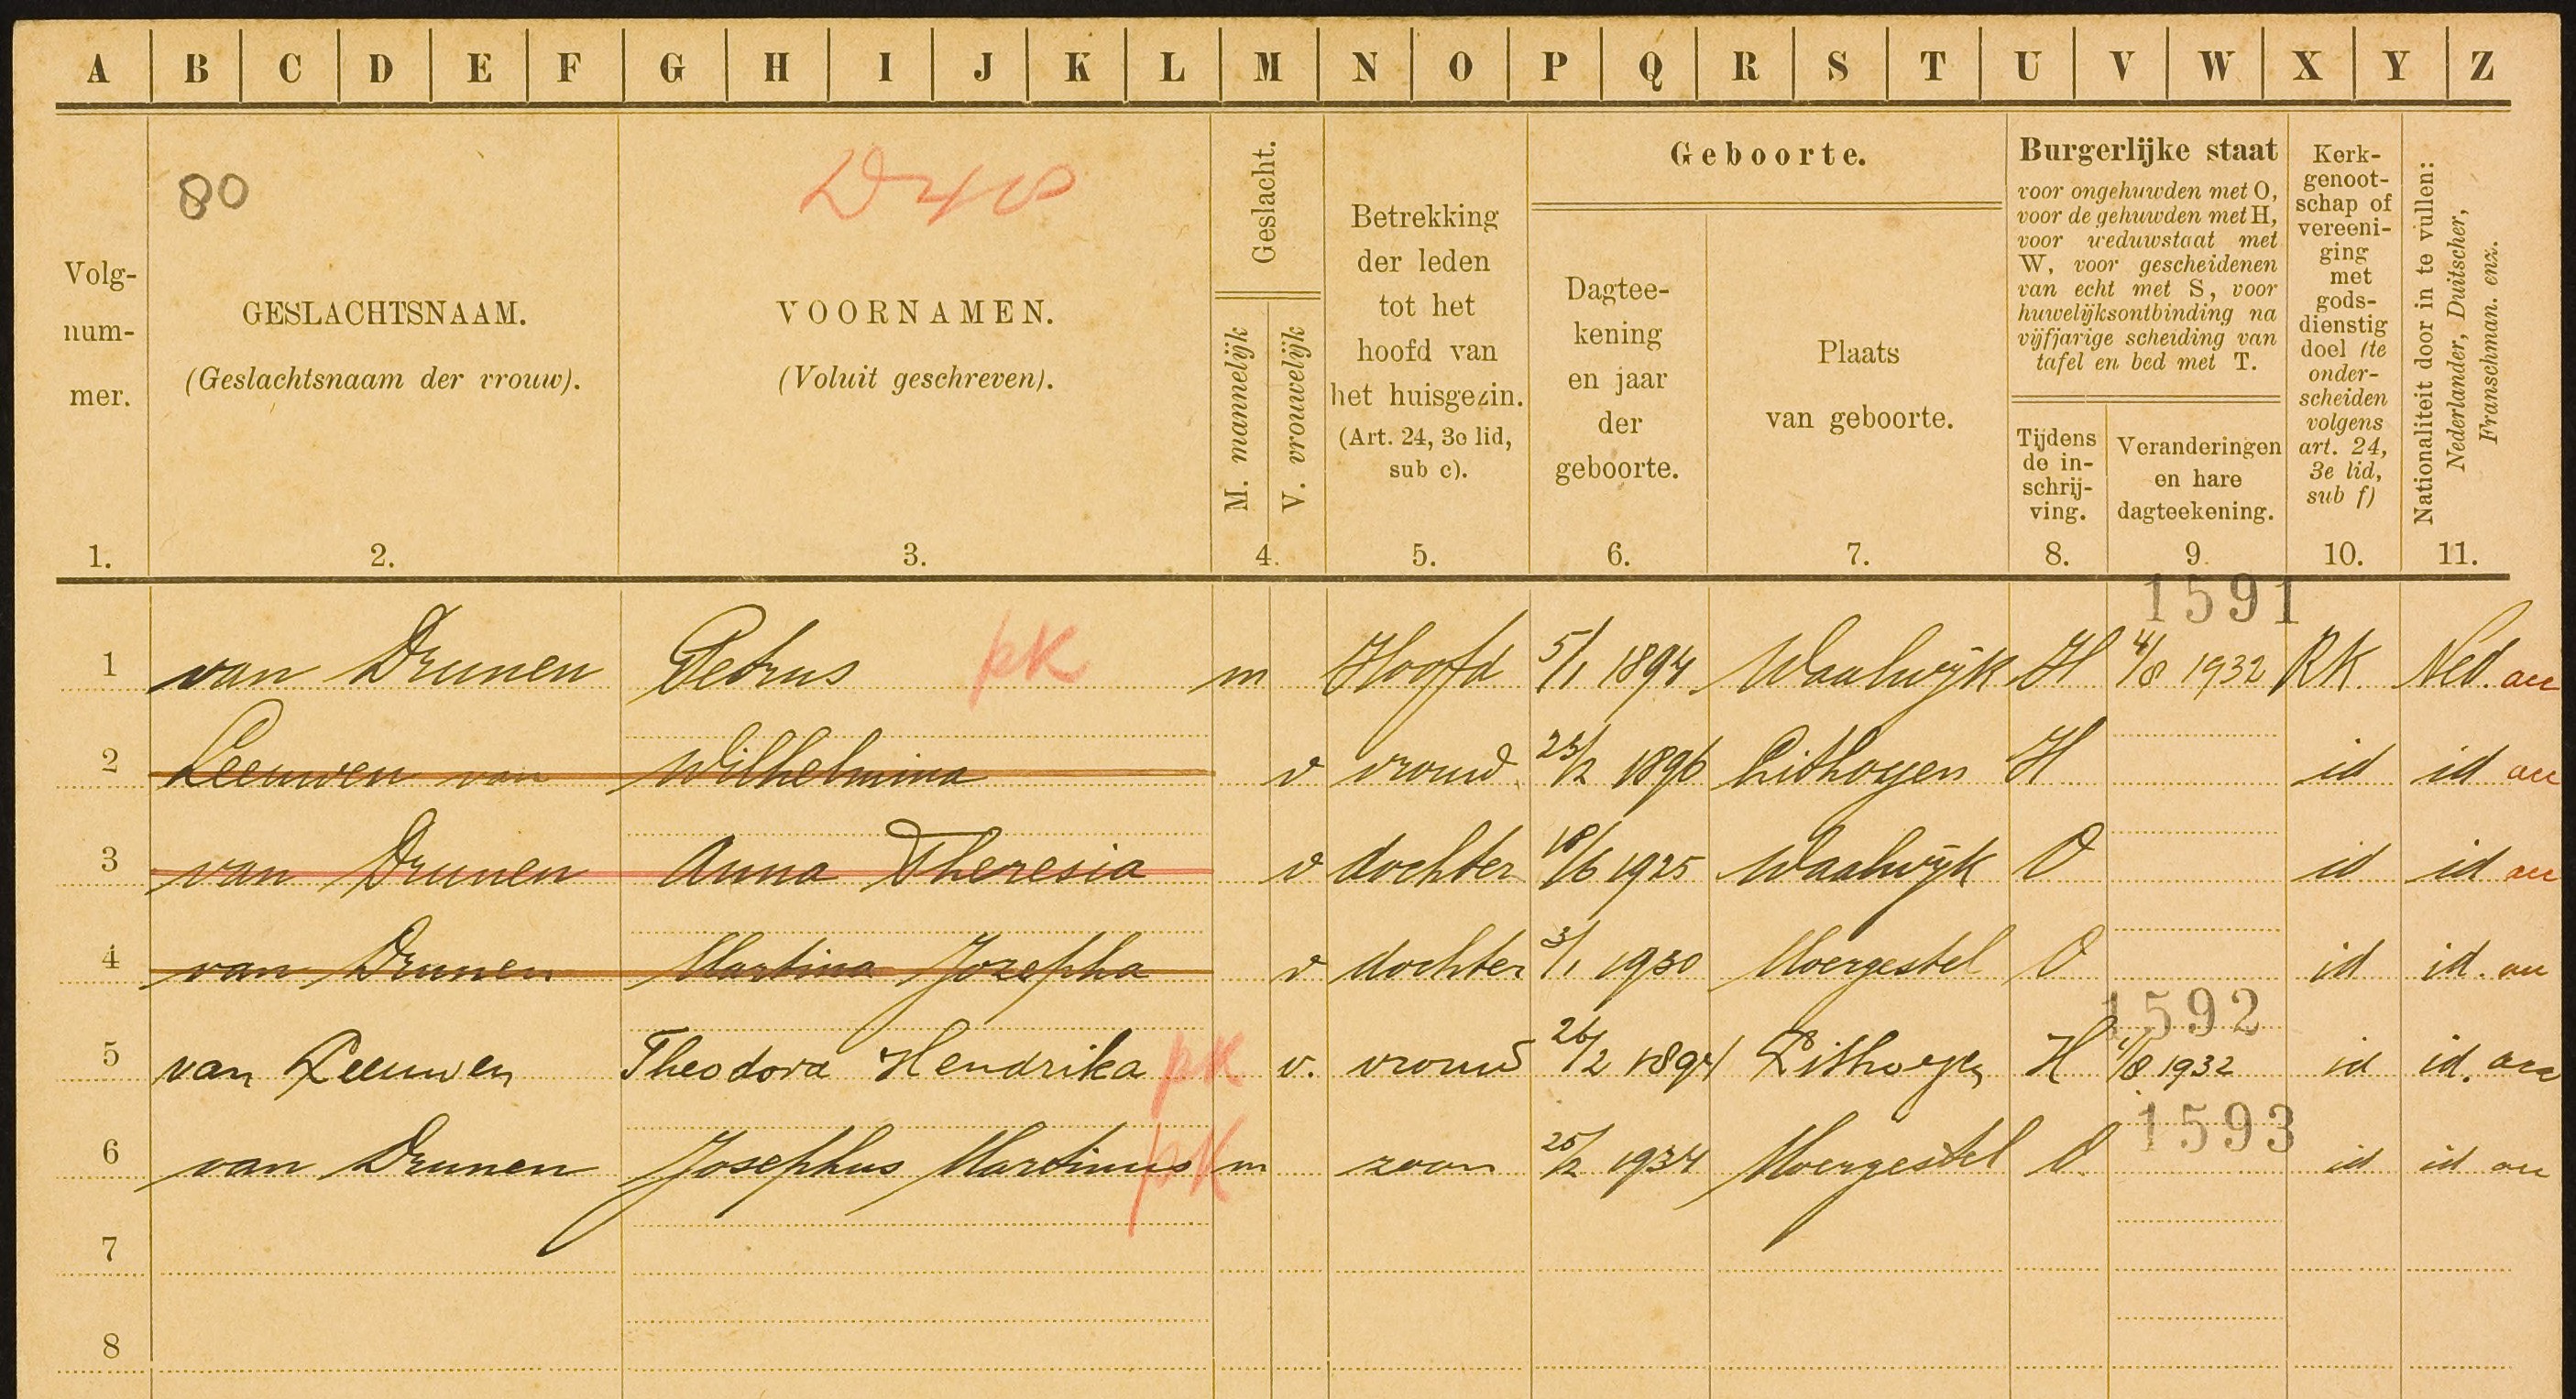 A B C D E F G H I J K L M N O P Q R S T U V W X Y Z
80
D40
Volg-
num-
mer.
1.
GESLACHTSNAAM.
(Geslachtsnaam der vrouw).
2.
VOORNAMEN.
(Voluit geschreven).
3.
Geslacht.
M. mannelijk
V. vrouwelijk
4.
Betrekking
der leden
tot het
hoofd van
het huisgezin.
(Art. 24, 3e lid,
sub c).
5.
Geboorte.
Dagtee-
kening
en jaar
der
geboorte.
6.
Plaats
van geboorte.
7.
Burgerlijke staat
voor ongehuwden met O,
voor de gehuwden met H,
voor weduwstaat met
W, voor gescheidenen
van echt met S, voor
huwelijksontbinding na
vijfjarige scheiding van
tafel en bed met T.
Tijdens
de in-
schrij-
ving.
8.
Veranderingen
en hare
dagteekening.
9.
Kerk-
genoot-
schap of
vereeni-
ging
met
gods-
dienstig
doel (te
onder-
scheiden
volgens
art. 24,
3e lid,
sub f)
10.
Nationaliteit door in te vullen:
Nederlander, Duitscher,
Franschman. enz.
11.
1591
1 van Drunen Petrus pk m Hoofd 5/1 1894 Waalwijk H 4/8 1932 RK Ned.
2 Leeuwen van Wilhelmina v vrouw 23/2 1896 Lithoyen H id id
3 van Drunen Anna Theresia v dochter 18/6 1925 Waalwijk O id id
4 van Drunen Martina Jozepha v dochter 3/1 1930 Moergestel O id id.
1592
5 van Leeuwen Theodora Hendrika pk v. vrouw 26/2 1894 Lithoyen H 4/8 1932 id id.
1593
6 van Drunen Josephus Martinus pk m zoon 25/2 1934 Moergestel O id id
7
8